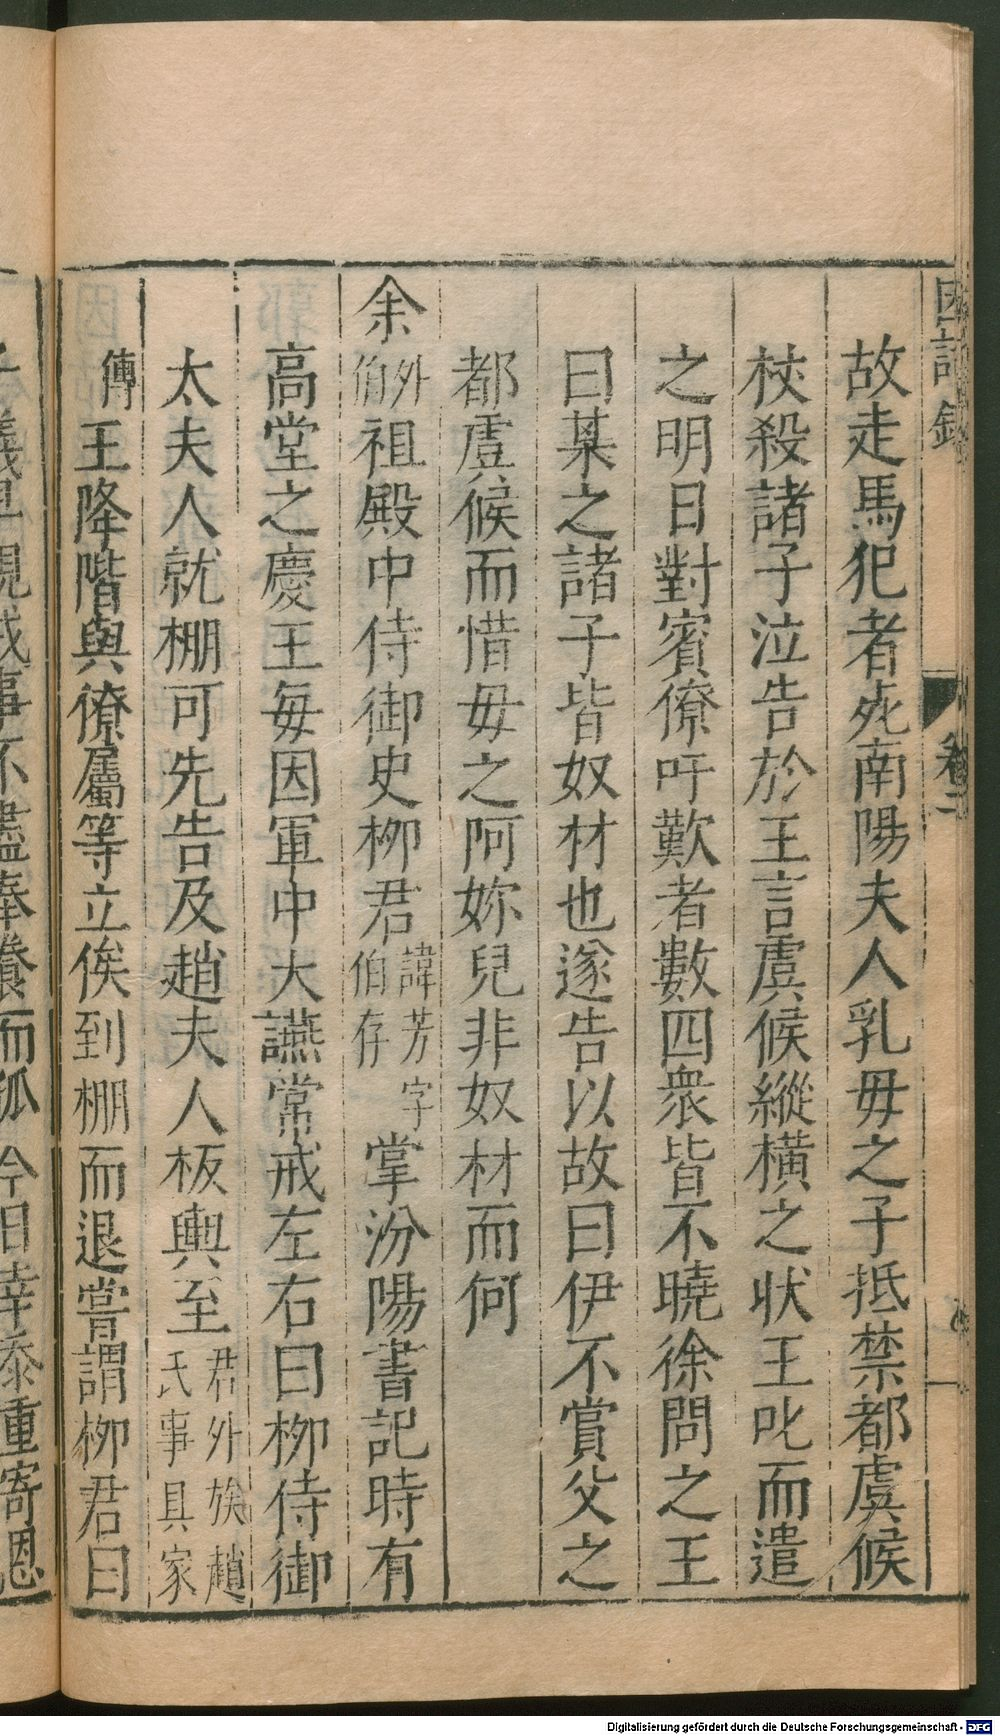 因話錄
卷二
故走馬犯者死南陽夫人乳母之子抵禁都虞候
杖殺諸子泣告於王言虞候縱橫之狀王叱而遣
之明日對賓僚吁歎者數四衆皆不曉徐問之王
曰某之諸子皆奴材也遂告以故曰伊不賞父之
都虞候而惜母之阿妳兒非奴材而何
余外伯祖殿中侍御史柳君諱芳字伯存掌汾陽書記時有
高堂之慶王每因軍中大讌常戒左右曰柳侍御
太夫人就棚可先告及趙夫人板輿至君外族趙氏事具家
傳王降階與僚屬等立俟到棚而退嘗謂柳君曰
義早親戎事不盡奉養而孤今日幸忝重寄恩
Digitalisierung gefördert durch die Deutsche Forschungsgemeinschaft - DFG